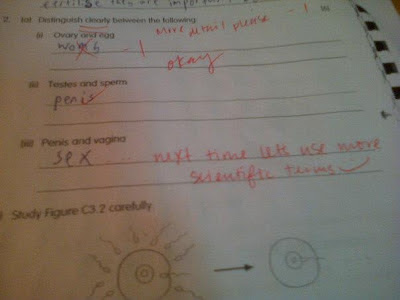 they are important
2. (a) Distinguish clearly between the following:
More detail please - 1
(i) Ovary and egg
- 1
okay
(ii) Testes and sperm
penis
(iii) Penis and vagina
sex .... next time lets use more
scientific terms
Study Figure C3.2 carefully